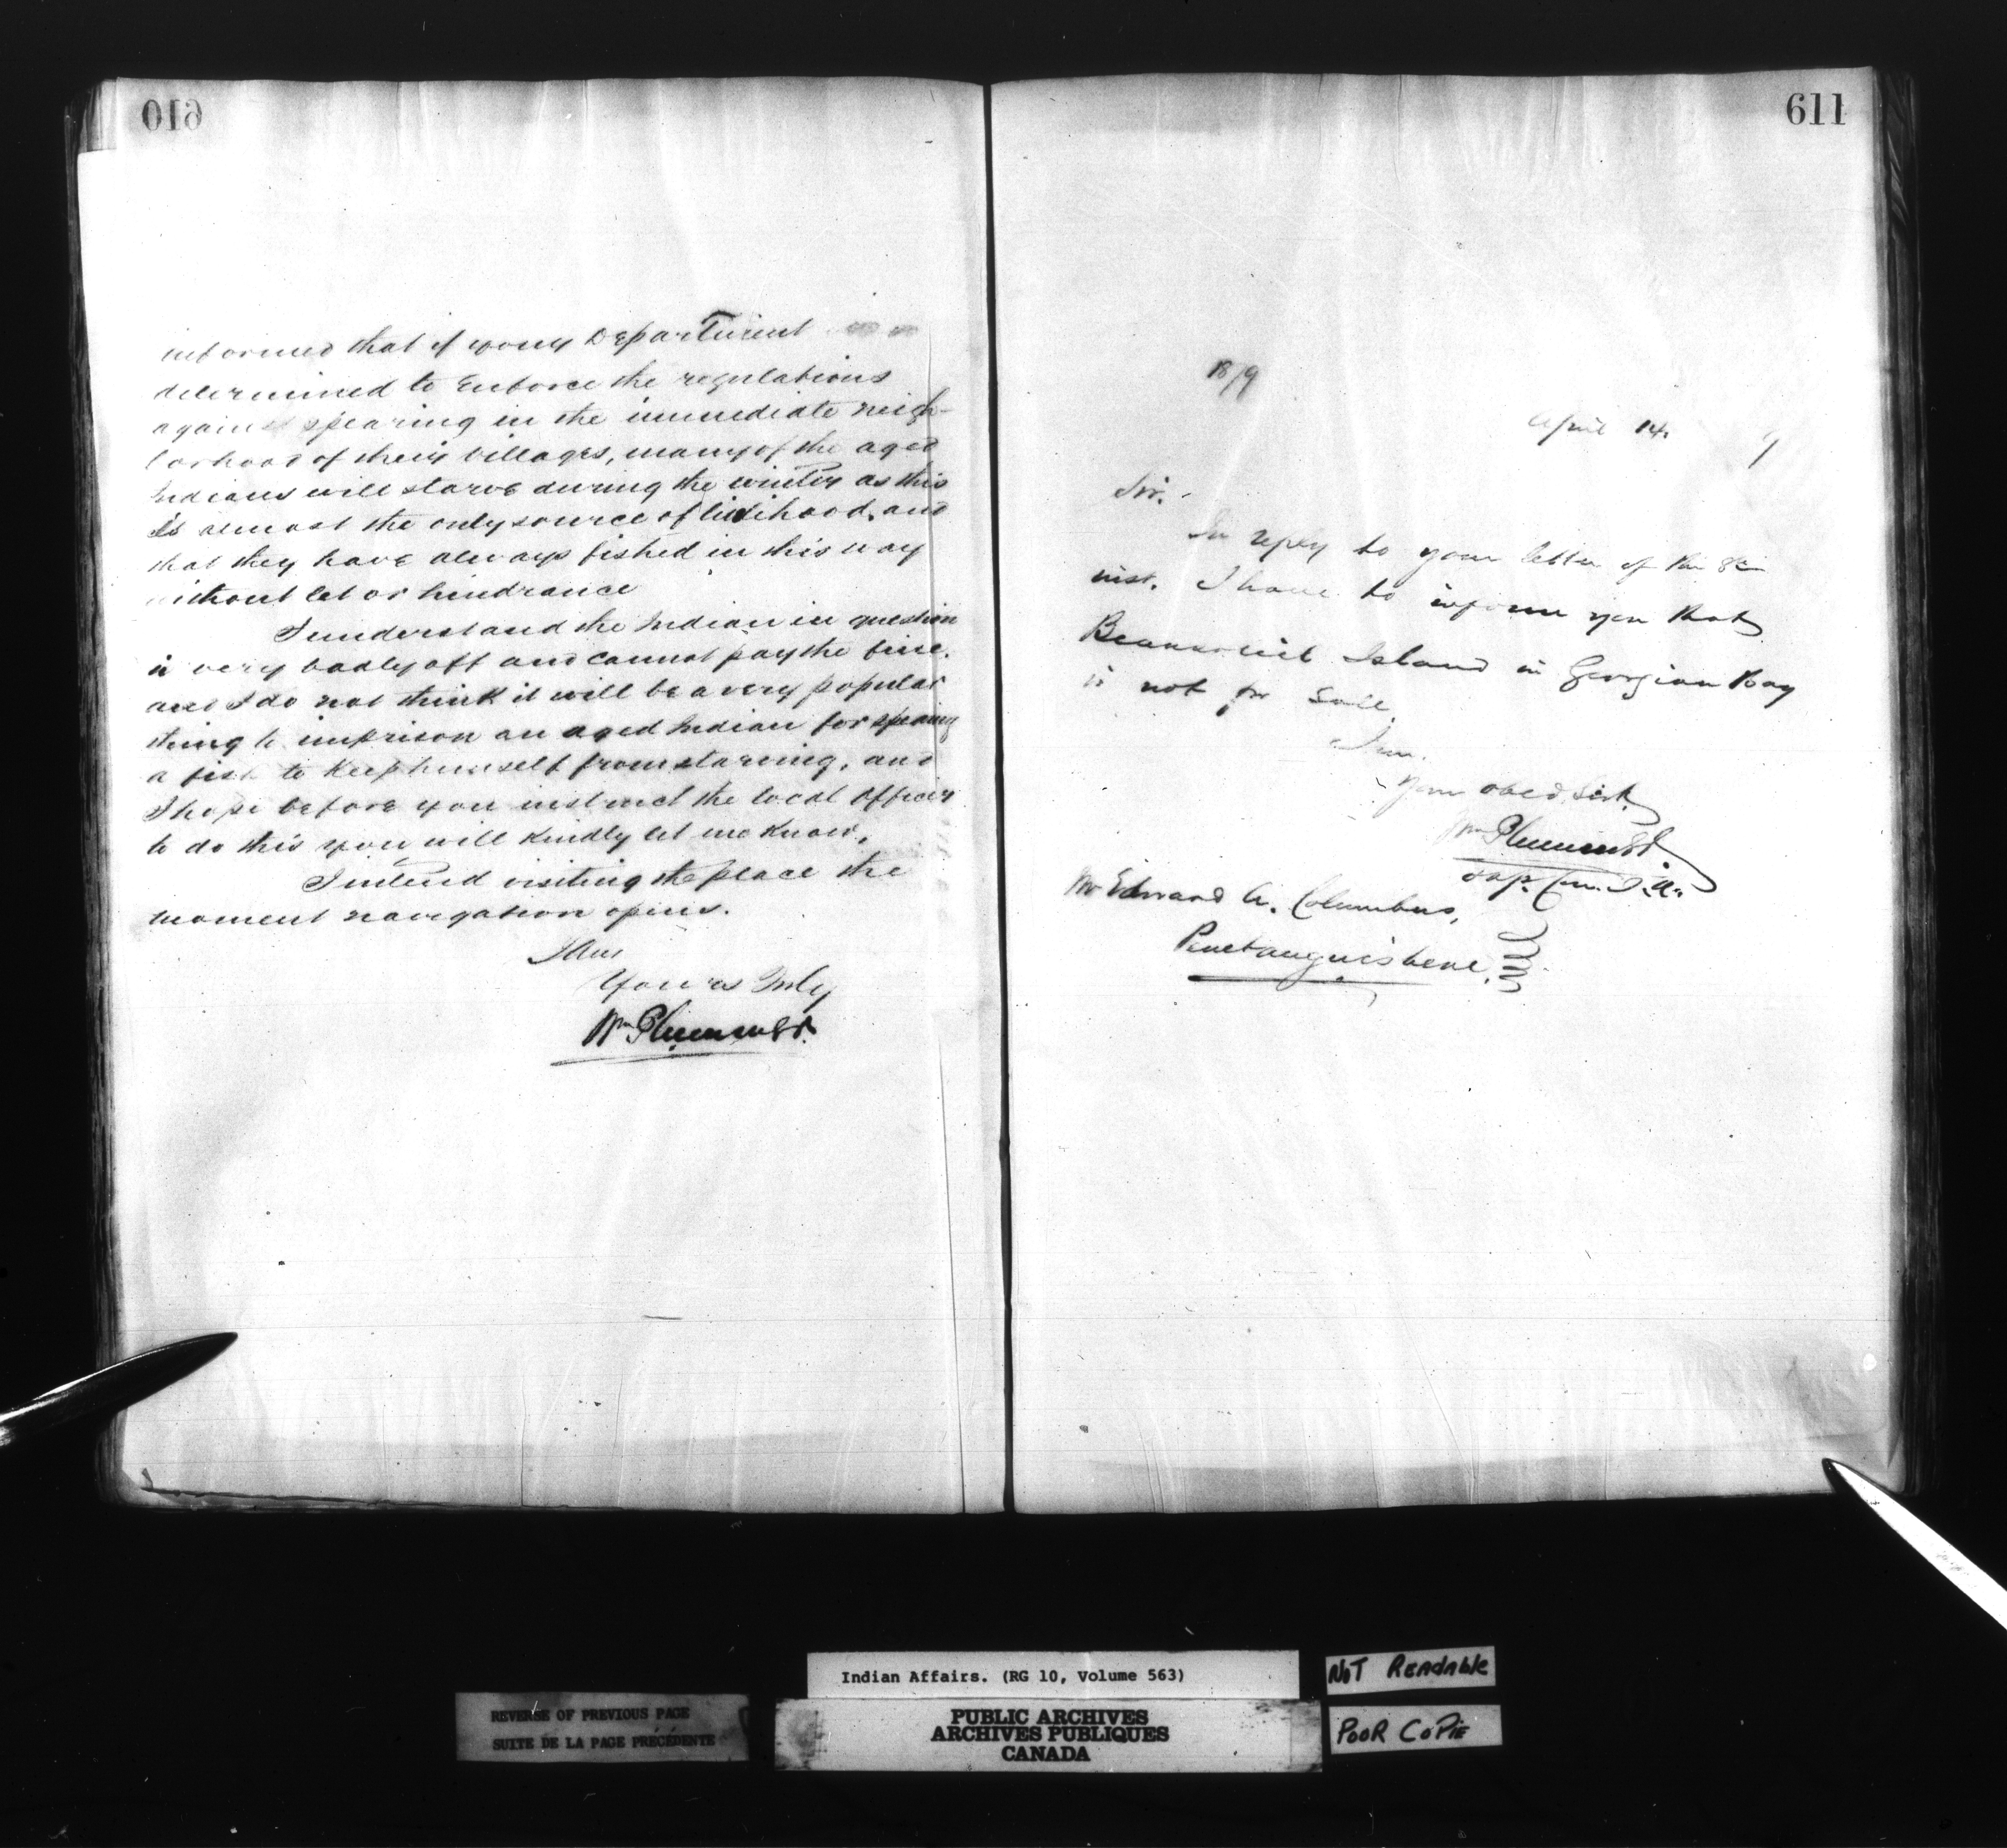 610
informed that if your Department
determined to Enforce the regulations
against spearing in the immediate neigh-
borhood of their Villages, many of the aged
Indians will starve during the winter as this
is almost the only source of livihood, and
that they have always fished in this way
without let or hindrance
I understand the Indian in question
is very badly off and cannot pay the fine.
and I do not think it will be a very popular
thing to imprison an aged Indian for spearing
a fish to Keep himself from starving, and
I hope before you instruct the local Officer
to do this you will Kindly let me Know.
I intend visiting the place the
moment navigation opens.
I Am
Yours Truly
Wm Plummer
611
18/9
April 14. 9
Sir.
In reply to your letter of the 8th
inst. I have to inform you that
Beausoleil Island in Georgian Bay
is not for Sale.
I am.
Your obed. Sert.
Wm Plummer
Sup. Com. I. A.
Mr Edward A. Columbus,
Penetanguishene.
Indian Affairs. (RG 10, Volume 563)
NOT READABLE
REVERSE OF PREVIOUS PAGE
SUITE DE LA PAGE PRÉCÉDENTE
PUBLIC ARCHIVES
ARCHIVES PUBLIQUES
CANADA
POOR COPIE